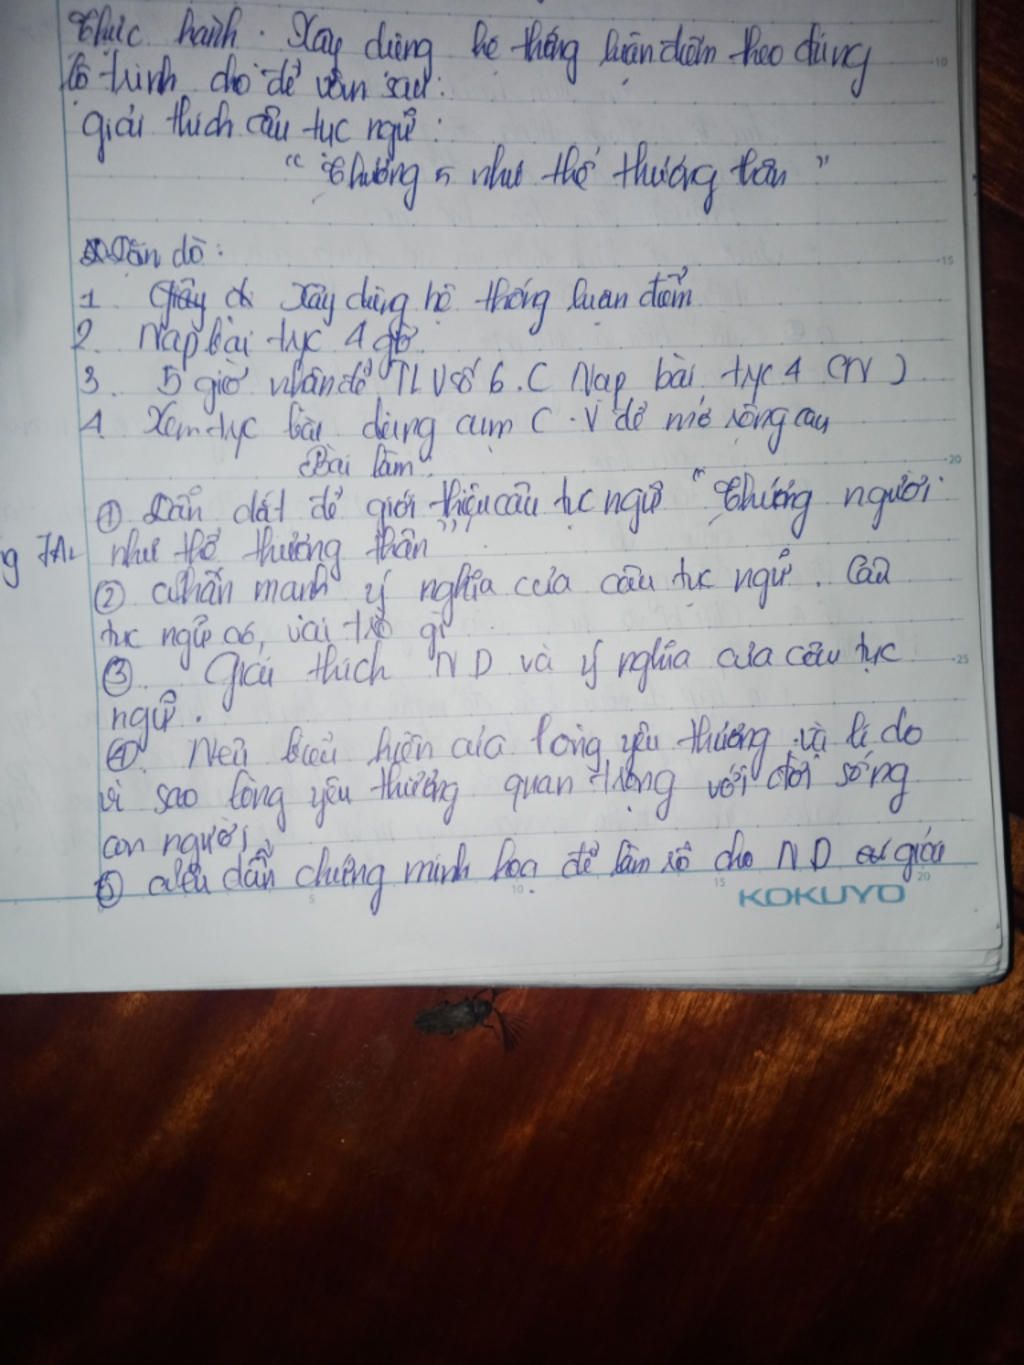 Thực hành. Xây dựng hệ thống luận điểm theo đúng
lộ trình cho đề văn sau:
giải thích câu tục ngữ:
“Thương n như thể thương thân”
Dặn dò:
1. Giấy Xây dựng hệ thống luận điểm
2. Nạp bài trực 4 giờ.
3. 5 giờ nhận đề TLV số 6. C Nạp bài trực 4 (N)
4. Xem trực bài dùng cụm C.V để mở rộng câu
Bài làm.
① Dẫn dắt để giới thiệu câu tục ngữ “Thương người
g TA
như thể thương thân”
② Nhấn mạnh ý nghĩa của câu tục ngữ. Câu
tục ngữ có, vai trò gì
③. Giải thích ND và ý nghĩa của câu tục
ngữ.
④. Nêu biểu hiện của lòng yêu thương và lí do
vì sao lòng yêu thương quan trọng với đời sống
con người,
⑤ Nêu dẫn chứng minh họa để làm rõ cho ND giải
KOKUYO
10
15
20
25
5
10
15
20